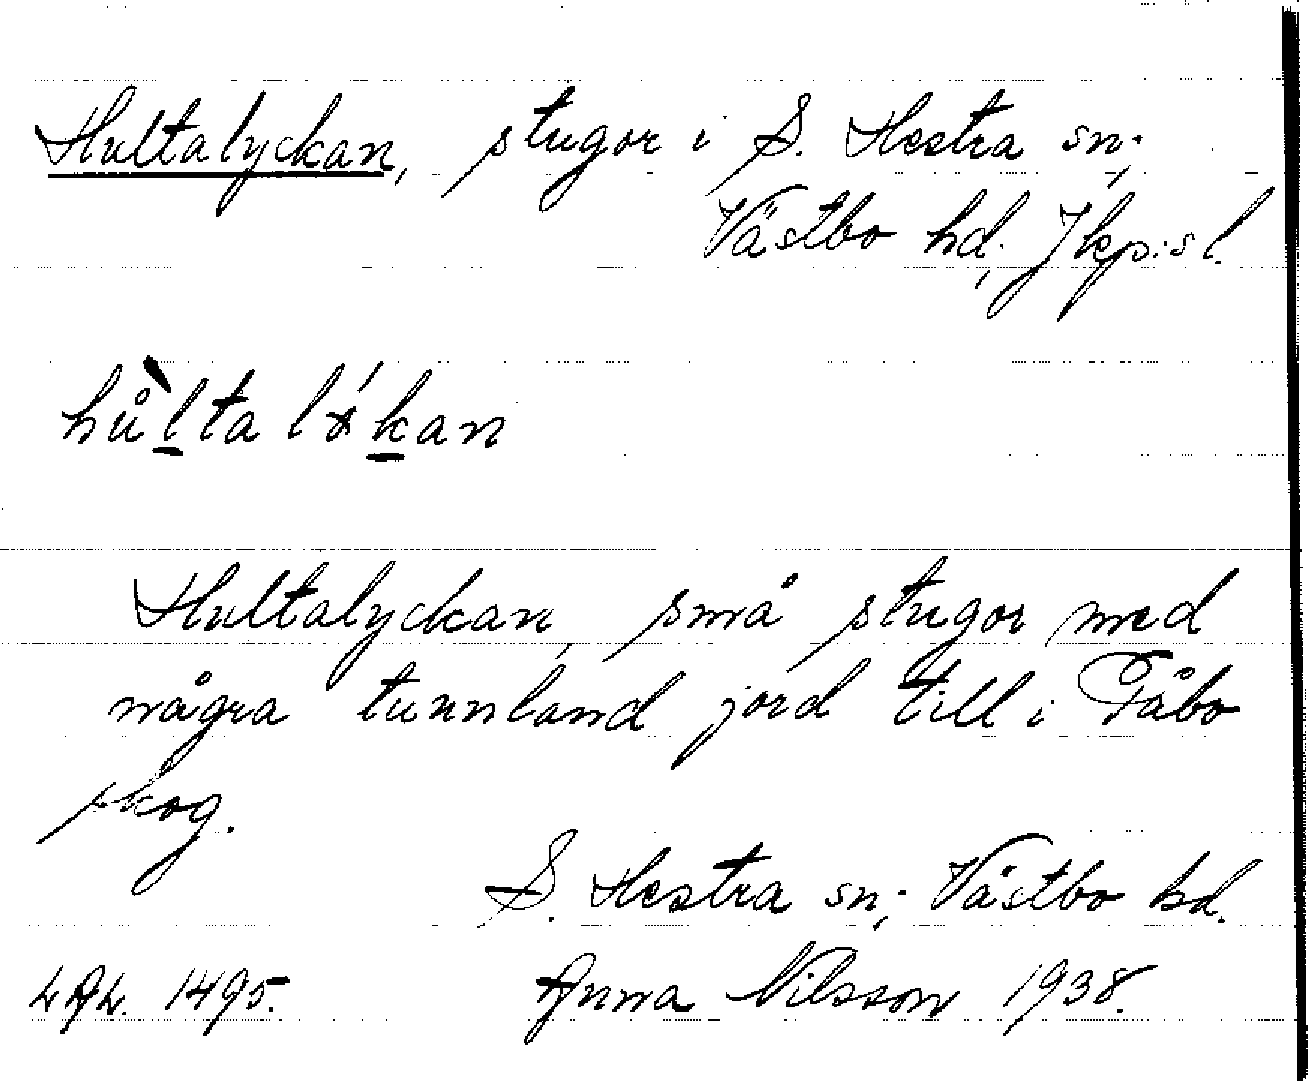 Hultalyckan, stugor i S. Hestra sn;
Västbo hd; Jkp:s l.
hů̀lta løkan
Hultalyckan, små stugor med
några tunnland jord till i Påbo
skog.
S. Hestra sn; Västbo hd.
LAL. 1495. Anna Nilsson 1938.